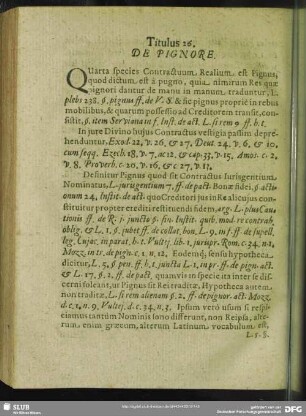 Titulus 26.
DE PIGNORE.
QUarta species Contractuum Realium est Pignus,
quod dictum est à pugno, quia nimirum Res quæ
pignori dantur de manu in manum traduntur, L.
plebs 238. §. pignus ff. de V. S. & sic pignus propriè in rebus
mobilibus, & quarum possessio ad Creditorem transit, con-
sistit, §. item Serviana in f. Inst. de act. L. si rem 9. ff. h. t.
In jure Divino hujus Contractus vestigia passim depre-
henduntur, Exod. 22, v. 26, & 27, Deut. 24, v. 6, & 10,
cum seqq. Ezech. 18, v. 7, & 12, & cap. 33, v. 15, Amos. c. 2,
v. 8. Proverb. c. 20, v. 16, & c. 27, v. 13.
Definitur Pignus quod sit Contractus Jurisgentium
Nominatus, L. jurisgentium 7, ff. de pact. Bonæ fidei, § actio
num 24, Instit. de act. quo Creditori jus in Re alicujus con-
stituitur propter crediti restituendi fidem,
tionis ff. de R. j. juncto §. fin. Instit. quib. mod. re contrah.
oblig. & L. 1. §. jubet ff. de collat. bon. L. 9. in f. ff. de supell.
leg. Cujac. in parat. h. t. Vultej. lib. 1. jurispr. Rom. c. 34, n. 1,
Mozz. in tr. de pign. c. 1, n. 12. Eodemq; sensu hypotheca
dicitur, L. 5, §. pen. ff. h. t. juncta L. 1, in pr. ff. de pign. act.
& L. 17, §. 2, ff. de pact, quamvis in specie ita inter se dif-
cerni soleant, ut Pignus sit Rei traditæ, Hypotheca autem
non traditæ, L. si rem alienam 9. §. 2, ff. de pignor. act. Mozz.
d. c. 1, n. 9, Vultej. d. c. 34, n. 3. Ipsum verò usum si respi-
ciamus tantùm Nominis sono differunt, non Reipsa, alte-
rum enim græcum, alterum Latinum vocabulum est,
L. 5. §.